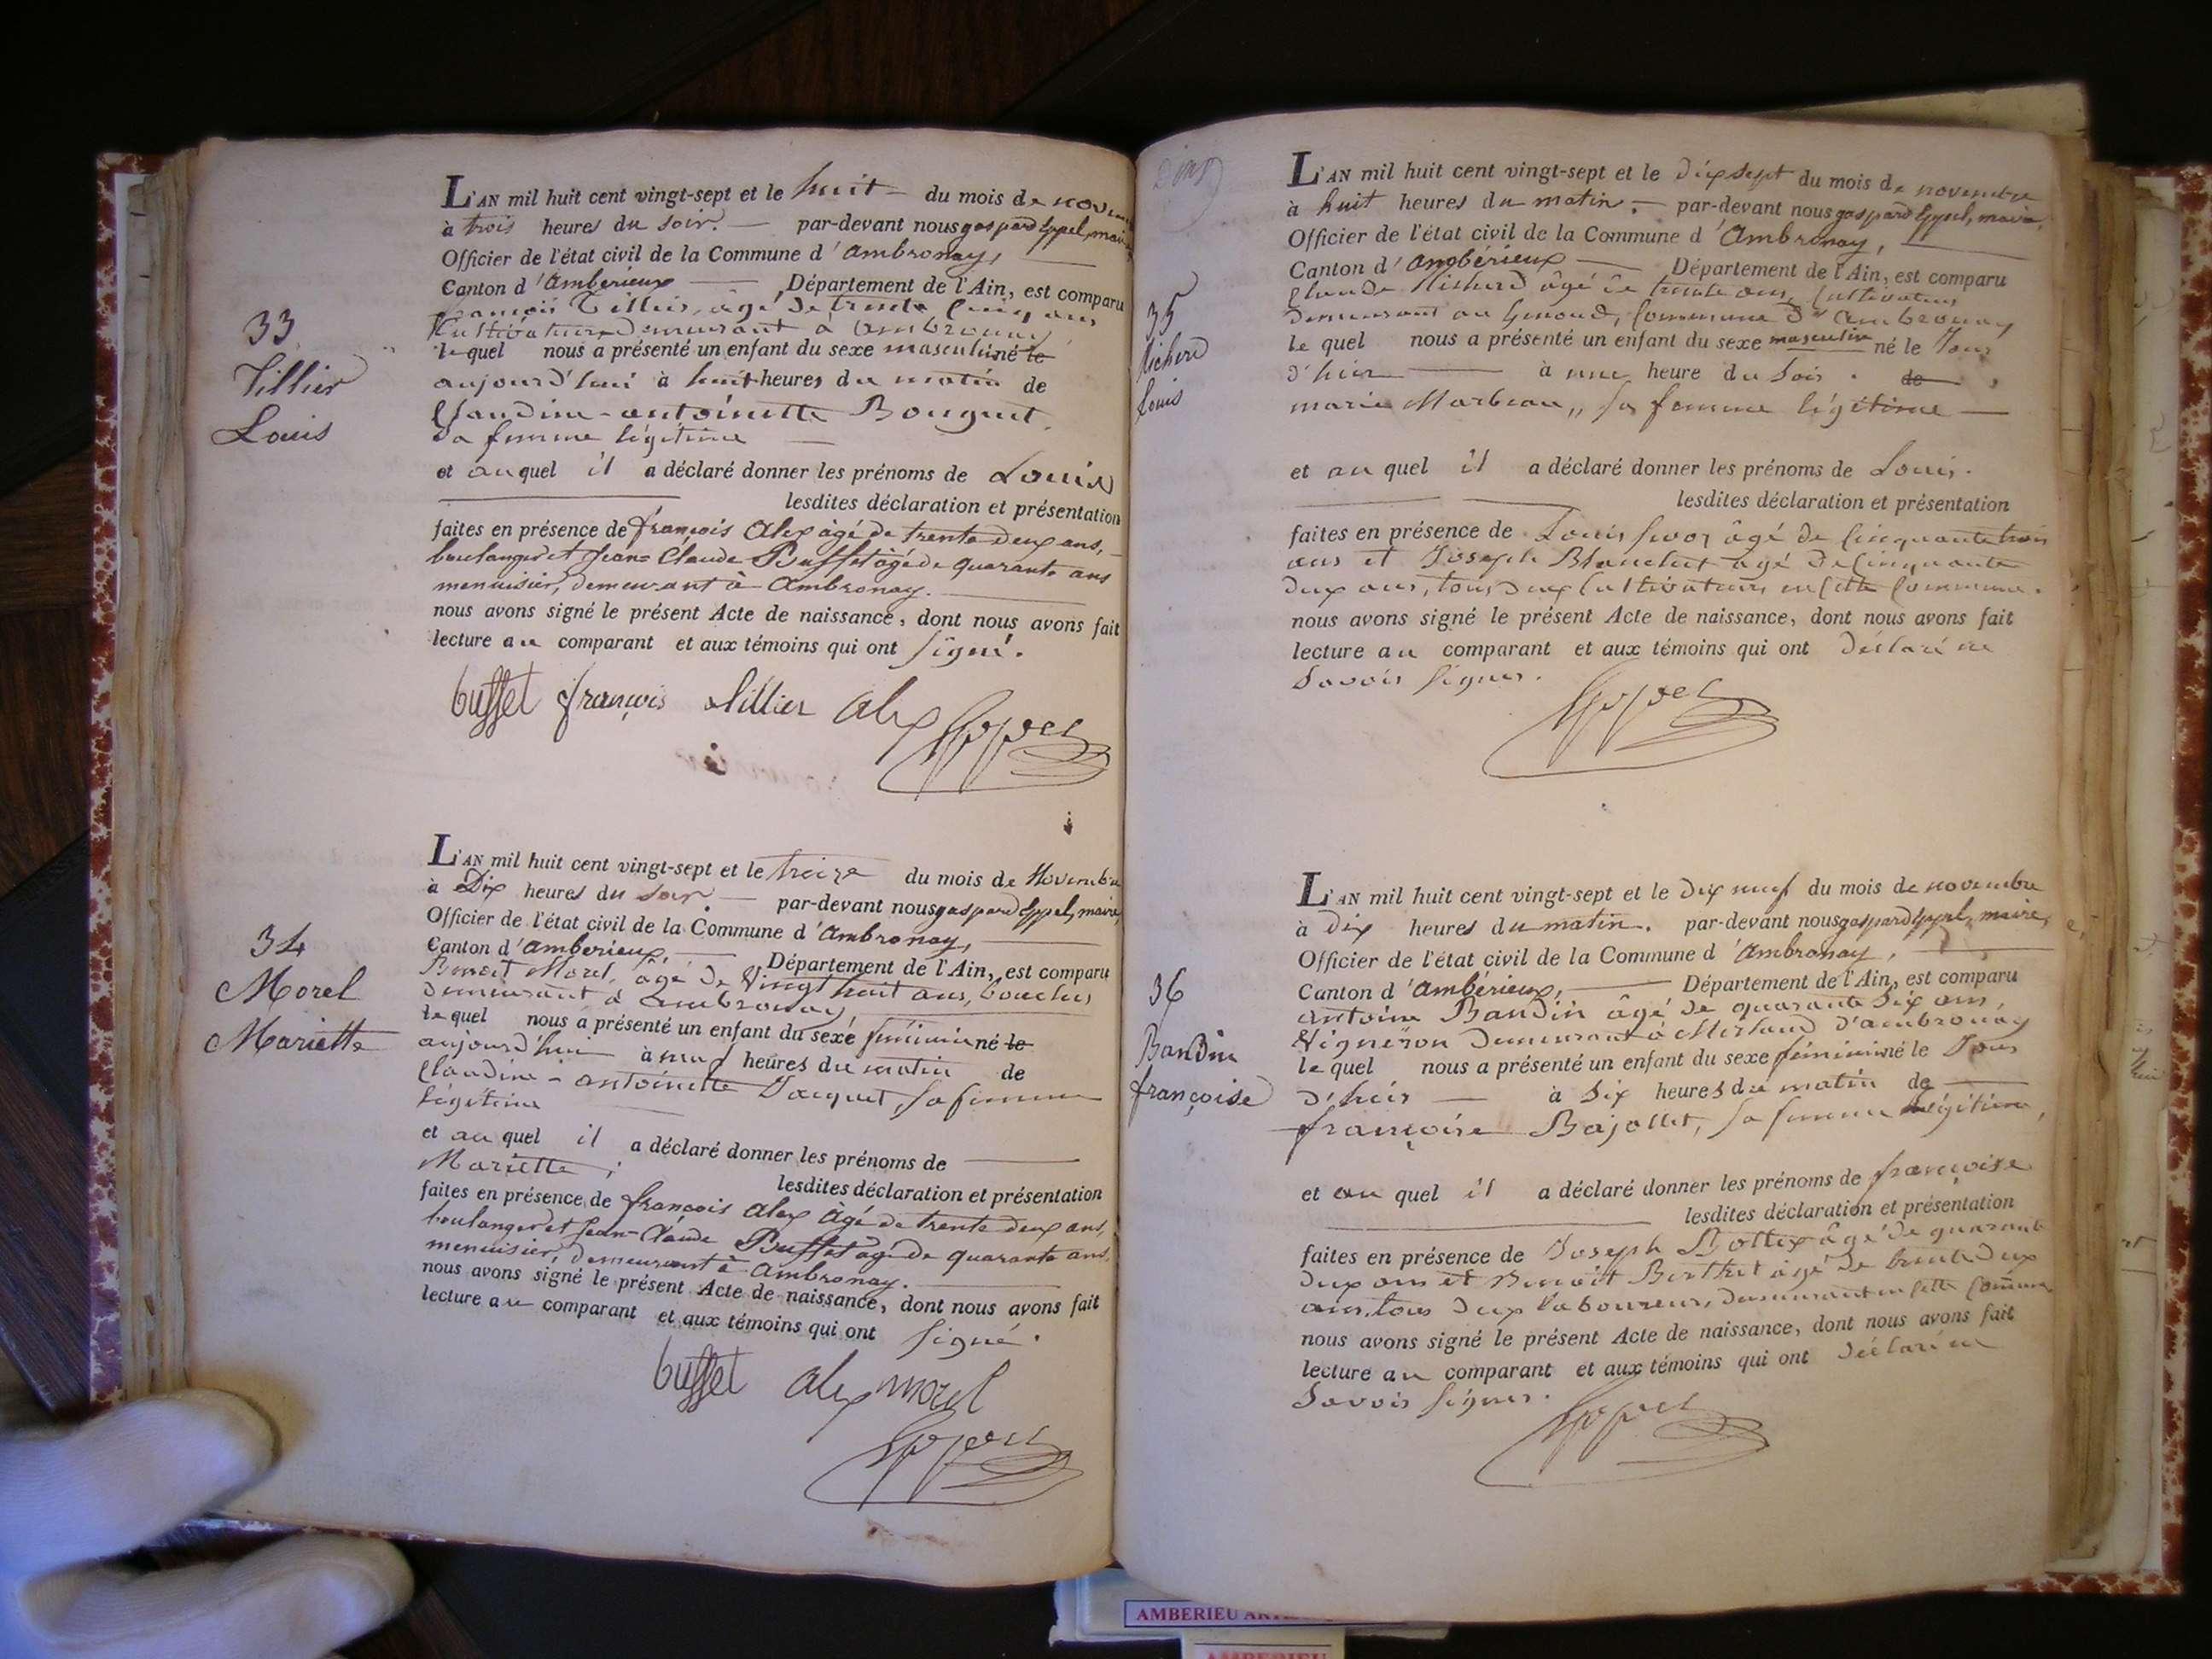 33
Tillier
Louis
L'AN mil huit cent vingt-sept et le huit du mois de
à trois heures du soir. par-devant nous gaspard Eppel, maire
Officier de l'état civil de la Commune d'Ambronay,
Canton d'Amberieux Département de l'Ain, est comparu
françois Tillier, âgé de trente cinq ans
Cultivateur demeurant à ambronay
lequel nous a présenté un enfant du sexe masculin né le
aujourd'hui à huit heures du matin de
Claudine-antoinette Bouquet,
Sa femme légitime
et auquel il a déclaré donner les prénoms de Louis
lesdites déclaration et présentation
faites en présence de françois Alex âgé de trente deux ans,
boulanger et Jean-Claude Buffet âgé de quarante ans
menuisier, demeurant à Ambronay.
nous avons signé le présent Acte de naissance, dont nous avons fait
lecture au comparant et aux témoins qui ont signé.
buffet françois tillier alex Eppel
34
Morel
Mariette
L'AN mil huit cent vingt-sept et le treize du mois de Novembre
à Dix heures du soir. par-devant nous gaspard Eppel, maire,
Officier de l'état civil de la Commune d'Ambronay,
Canton d'Amberieux, Département de l'Ain, est comparu
Benoit Morel, âgé de Vingt huit ans, boucher
demeurant à ambronay,
lequel nous a présenté un enfant du sexe féminin né le
aujourd'hui à neuf heures du matin de
Claudine-antoinette Jacquet, Sa femme
légitime
et au quel il a déclaré donner les prénoms de
Mariette,
lesdites déclaration et présentation
faites en présence de françois Alex âgé de trente deux ans,
boulanger et Jean-Claude Buffet âgé de quarante ans,
menuisier, demeurant à Ambronay.
nous avons signé le présent Acte de naissance, dont nous avons fait
lecture au comparant et aux témoins qui ont signé.
buffet alex morel
Eppel
35
Richerd
Louis
L'AN mil huit cent vingt-sept et le dix sept du mois de novembre
à huit heures du matin. par-devant nous gaspard Eppel, maire,
Officier de l'état civil de la Commune d'Ambronay,
Canton d'Ambérieux Département de l'Ain, est comparu
Claude Richerd âgé de trente ans, Cultivateur
demeurant au Genoud, Commune d'ambronay
le quel nous a présenté un enfant du sexe masculin né le Jour
d'hier à une heure du Soir. de
marie Marbeau, Sa femme légitime
et au quel il a déclaré donner les prénoms de Louis.
lesdites déclaration et présentation
faites en présence de Louis âgé de Cinquante trois
ans et Joseph Blanchet âgé de Cinquante
deux ans, tous deux Cultivateurs en cette Commune.
nous avons signé le présent Acte de naissance, dont nous avons fait
lecture au comparant et aux témoins qui ont déclaré ne
Savoir Signer.
Eppel
36
Bandin
françoise
L'AN mil huit cent vingt-sept et le dix neuf du mois de novembre
à dix heures du matin. par-devant nous gaspard Eppel, maire,
Officier de l'état civil de la Commune d'Ambronay,
Canton d'Ambérieux, Département de l'Ain, est comparu
antoine Bandin âgé de quarante Six ans,
Vigneron demeurant à Merland d'ambronay
lequel nous a présenté un enfant du sexe féminin né le Jour
d'hier à Six heures du matin de
françoise Bajollet, Sa femme légitime,
et au quel il a déclaré donner les prénoms de françoise
lesdites déclaration et présentation
faites en présence de Joseph Bottex âgé de quarante
deux ans et Benoit Berthet âgé de trente deux
ans, tous deux laboureurs, demeurant en cette Commune
nous avons signé le présent Acte de naissance, dont nous avons fait
lecture au comparant et aux témoins qui ont déclaré ne
Savoir Signer.
Eppel
AMBERIEU
AMBERIEU